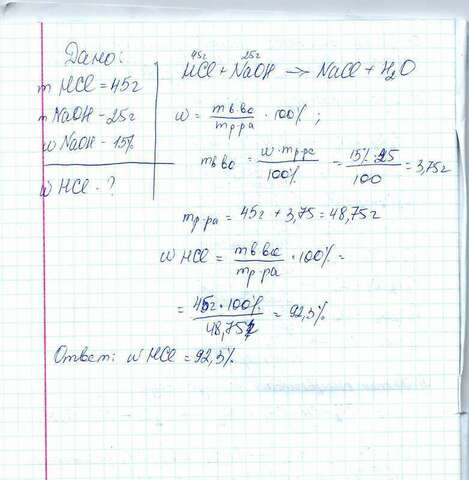 Дано:
m HCl = 45г
m NaOH - 25г
w NaOH - 15%
w HCl - ?
45г 25г
HCl + NaOH → NaCl + H₂O
w = m в-во / m р-ра · 100% ;
m в-во = w · m р-ра / 100% = 15% · 25 / 100 = 3,75г
m р-ра = 45г + 3,75 = 48,75г
w HCl = m в-во / m р-ра · 100% =
= 45г · 100% / 48,75г = 92,3%
Ответ: w HCl = 92,3%